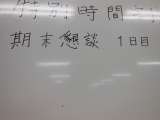 特別時間
期末懇談 1日目